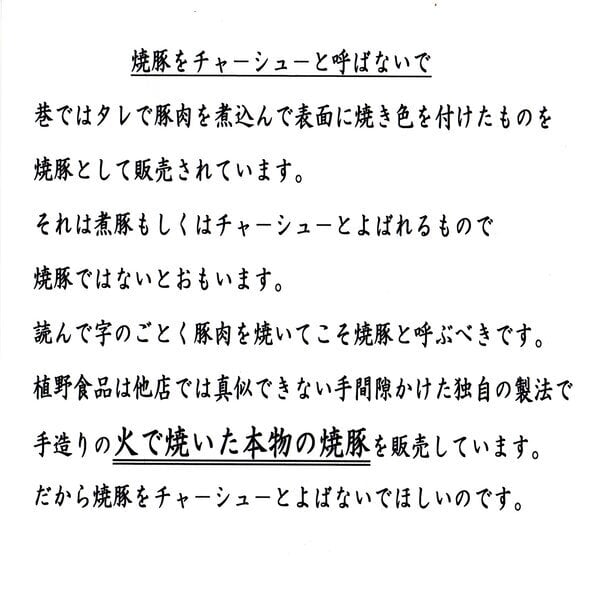 焼豚をチャーシューと呼ばないで
巷ではタレで豚肉を煮込んで表面に焼き色を付けたものを
焼豚として販売されています。
それは煮豚もしくはチャーシューとよばれるもので
焼豚ではないとおもいます。
読んで字のごとく豚肉を焼いてこそ焼豚と呼ぶべきです。
植野食品は他店では真似できない手間隙かけた独自の製法で
手造りの火で焼いた本物の焼豚を販売しています。
だから焼豚をチャーシューとよばないでほしいのです。